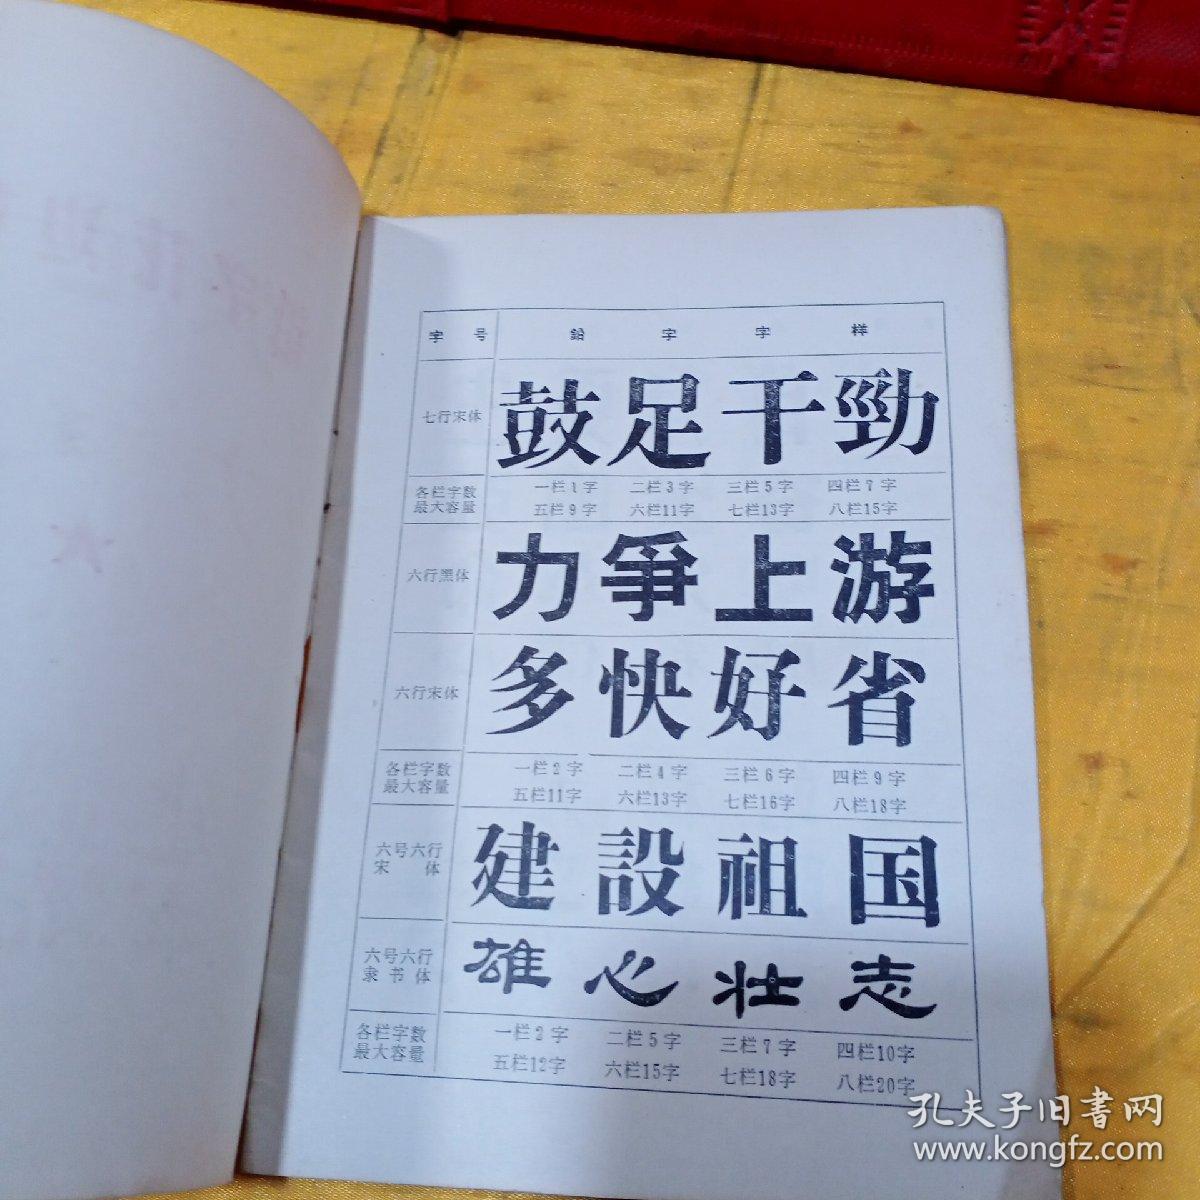 字 号 鉛 字 字 样
七行宋体 鼓足干勁
各栏字数 一栏1字 二栏3字 三栏5字 四栏7字
最大容量 五栏9字 六栏11字 七栏13字 八栏15字
六行黑体 力爭上游
六行宋体 多快好省
各栏字数 一栏2字 二栏4字 三栏6字 四栏9字
最大容量 五栏11字 六栏13字 七栏16字 八栏18字
六号六行
宋 体 建設祖国
六号六行
隶书体 雄心壮志
各栏字数 一栏2字 二栏5字 三栏7字 四栏10字
最大容量 五栏12字 六栏15字 七栏18字 八栏20字
孔夫子旧書网
www.kongfz.com